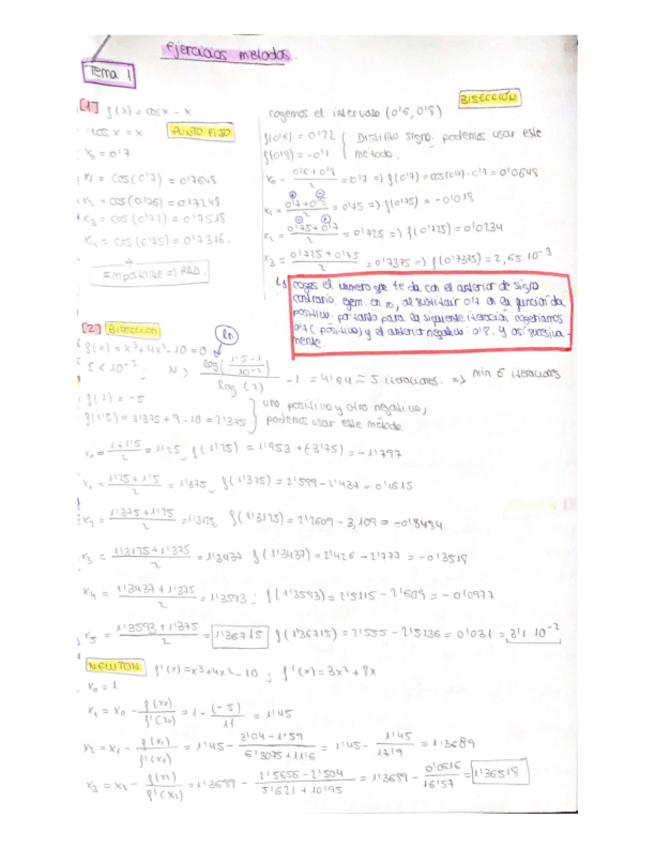 Ejercicios metodos.
Tema 1
[1] f(x) = cosx - x
cos x = x PUNTO FIJO
x0 = 0'7
x1 = cos(0'7) = 0'7648
x3 = cos(0'72) = 0'7518
x4 = cos(0'75) = 0'7316.
Importante => RAD.
BISECCIÓN
cogemos el intervalo (0'6, 0'8)
f(0'6) = 0'22
f(0'8) = -0'1
Distinto signo, podemos usar este método.
x0 = 0'6+0'8 / 2 = 0'7 => f(0'7) = cos(0'7) - 0'7 = 0'0648
x1 = 0'7+0'8 / 2 = 0'75 => f(0'75) = -0'018
x2 = 0'75+0'7 / 2 = 0'725 => f(0'725) = 0'0234
x3 = 0'725+0'75 / 2 = 0'7375 => f(0'7375) = 2,65·10^-3
coges el número que te da con el anterior de signo
contrario, ejem. en x0, al sustituir 0'7 en la función da
positivo. por tanto para la siguiente iteración cogeriamos
0'7 (positivo) y el anterior negativo 0'8. Y así sucesiva-
mente.
[2] Biseccion
ln
f(x) = x³+4x²-10 = 0
ε < 10^-2 ; N > log(1'5-1 / 10^-2) / log(2) - 1 = 4'64 ≈ 5 iteraciones. => min 5 iteraciones
f(1) = -5
f(1'5) = 3'375 + 9 - 10 = 2'375
uno positivo y otro negativo,
podemos usar este método
x0 = 1+1'5 / 2 = 1'25, f(1'25) = 1'953 + (-3'75) = -1'797
x1 = 1'25+1'5 / 2 = 1'375, f(1'375) = 2'599 - 2'437 = 0'1615
x2 = 1'375+1'25 / 2 = 1'3125, f(1'3125) = 2'2609 - 3,109 = -0'8484
x3 = 1'3125+1'375 / 2 = 1'3437 f(1'3437) = 2'426 - 2'777 = -0'3518
x4 = 1'3437+1'375 / 2 = 1'3593; f(1'3593) = 2'5115 - 2'609 = -0'0977
x5 = 1'3593+1'375 / 2 = 1'36715 f(1'36715) = 2'555 - 2'5236 = 0'031 = 3'1 10^-2
NEWTON f(x) = x³+4x²-10 ; f'(x) = 3x²+8x
x0 = 1
x1 = x0 - f(x0) / f'(x0) = 1 - (-5) / 11 = 1'45
x2 = x1 - f(x1) / f'(x1) = 1'45 - 3'04-1'59 / 6'3075+11'6 = 1'45 - 1'45 / 17'9 = 1'3689
x3 = x2 - f(x2) / f'(x2) = 1'3689 - 2'5656-2'504 / 5'621+10'95 = 1'3689 - 0'0616 / 16'57 = 1'36518